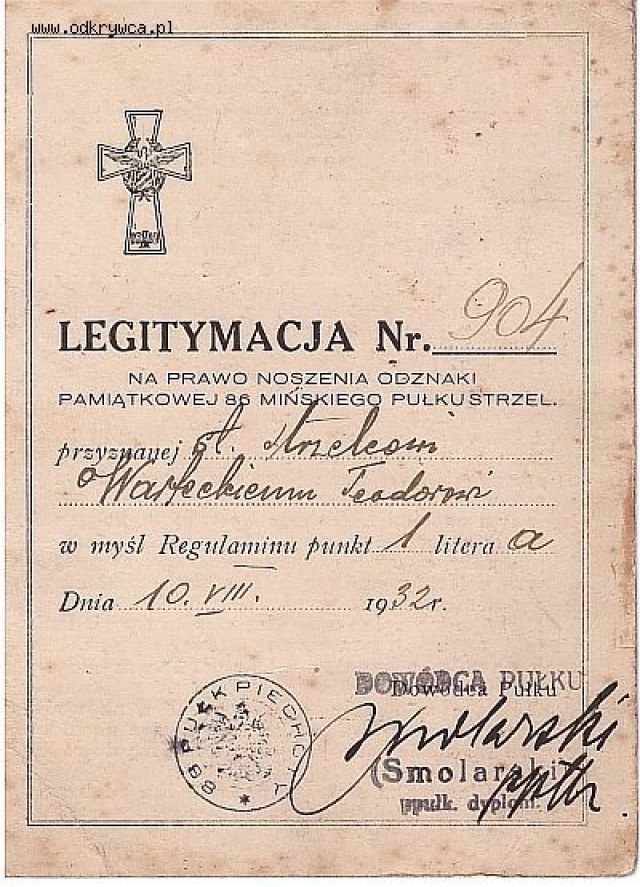 www.odkrywca.pl
LEGITYMACJA Nr. 904
NA PRAWO NOSZENIA ODZNAKI
PAMIĄTKOWEJ 86 MIŃSKIEGO PUŁKU STRZEL.
przyznanej st. strzelcowi
Warteckiemu Teodorowi
w myśl Regulaminu punkt 1 litera a
Dnia 10. VIII. 1932 r.
DOWÓDCA PUŁKU
Dowódca Pułku
86 PUŁK PIECHOTY *
Smolarski
(Smolarski)
ppułk. dyplom.